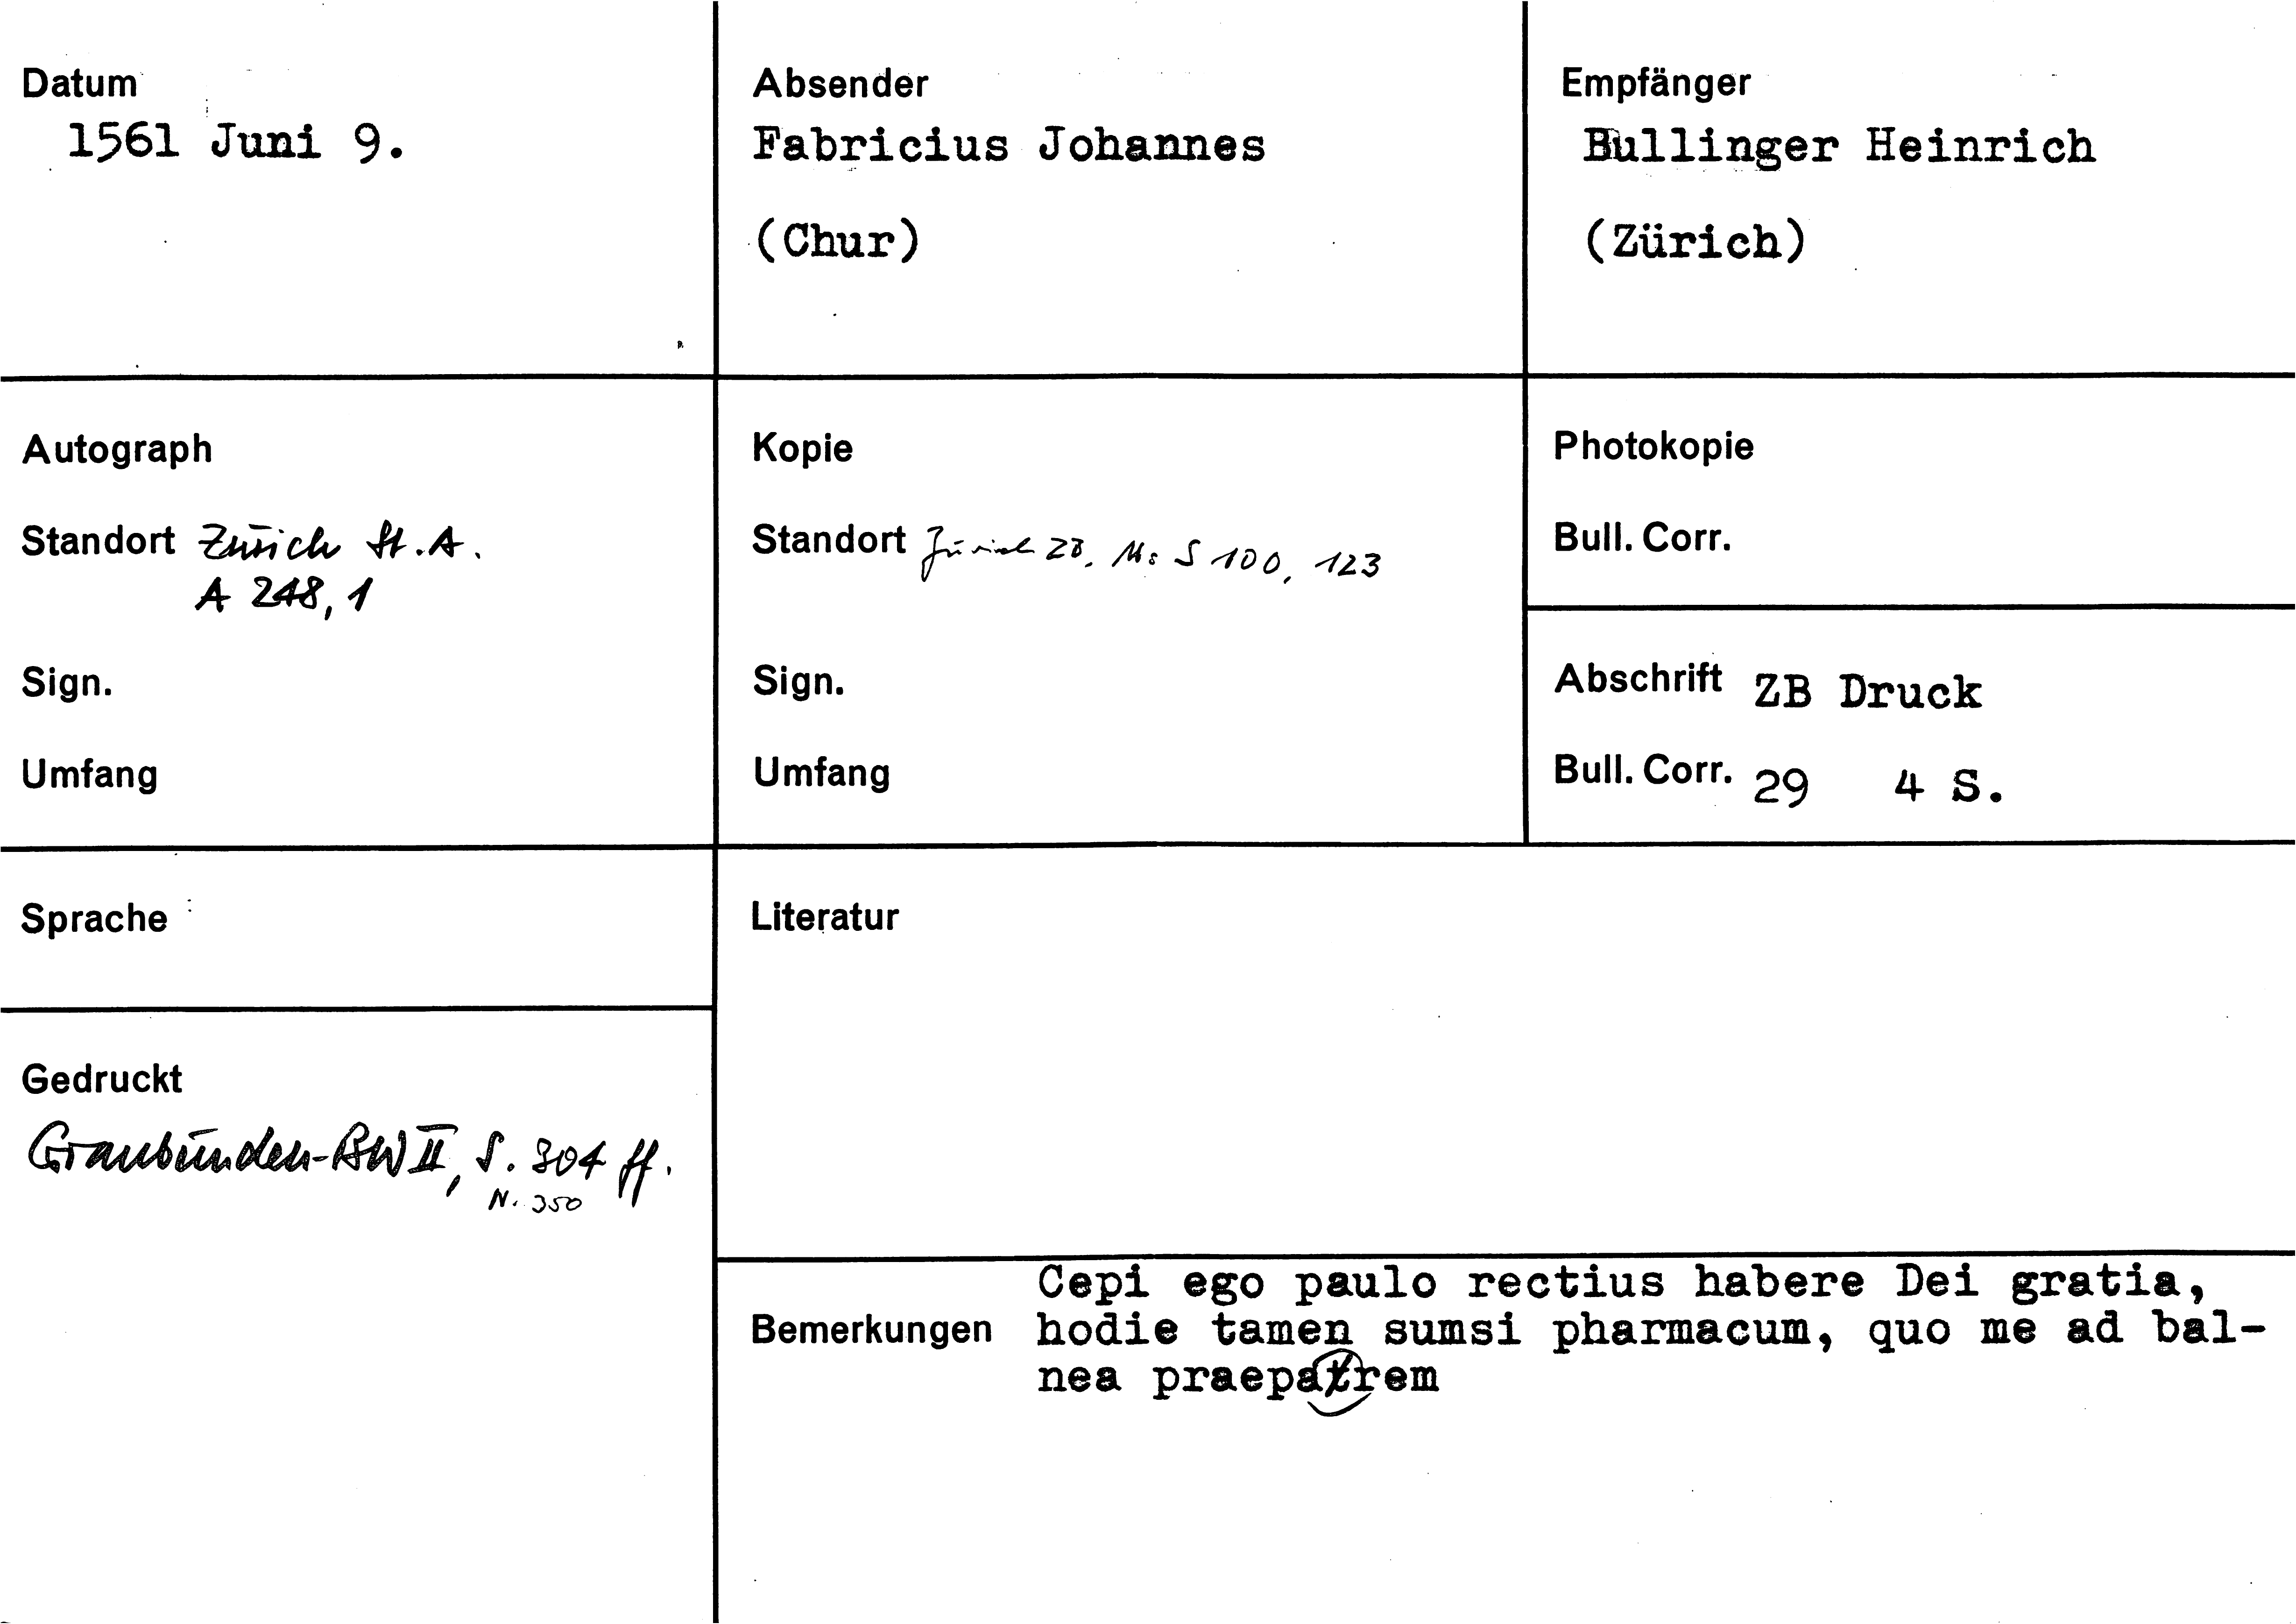 Datum
1561 Juni 9.
Absender
Fabricius Johannes
(Chur)
Empfänger
Bullinger Heinrich
(Zürich)
Autograph
Standort Zürich St.A.
A 248,1
Sign.
Umfang
Kopie
Standort Zürich ZB, Ms S 100, 123
Sign.
Umfang
Photokopie
Bull. Corr.
Abschrift ZB Druck
Bull. Corr. 29 4 S.
Sprache
Literatur
Gedruckt
Graubünden-BW II, S. 304 ff.
N. 350
Bemerkungen
Cepi ego paulo rectius habere Dei gratia,
hodie tamen sumsi pharmacum, quo me ad bal-
nea praepatrem